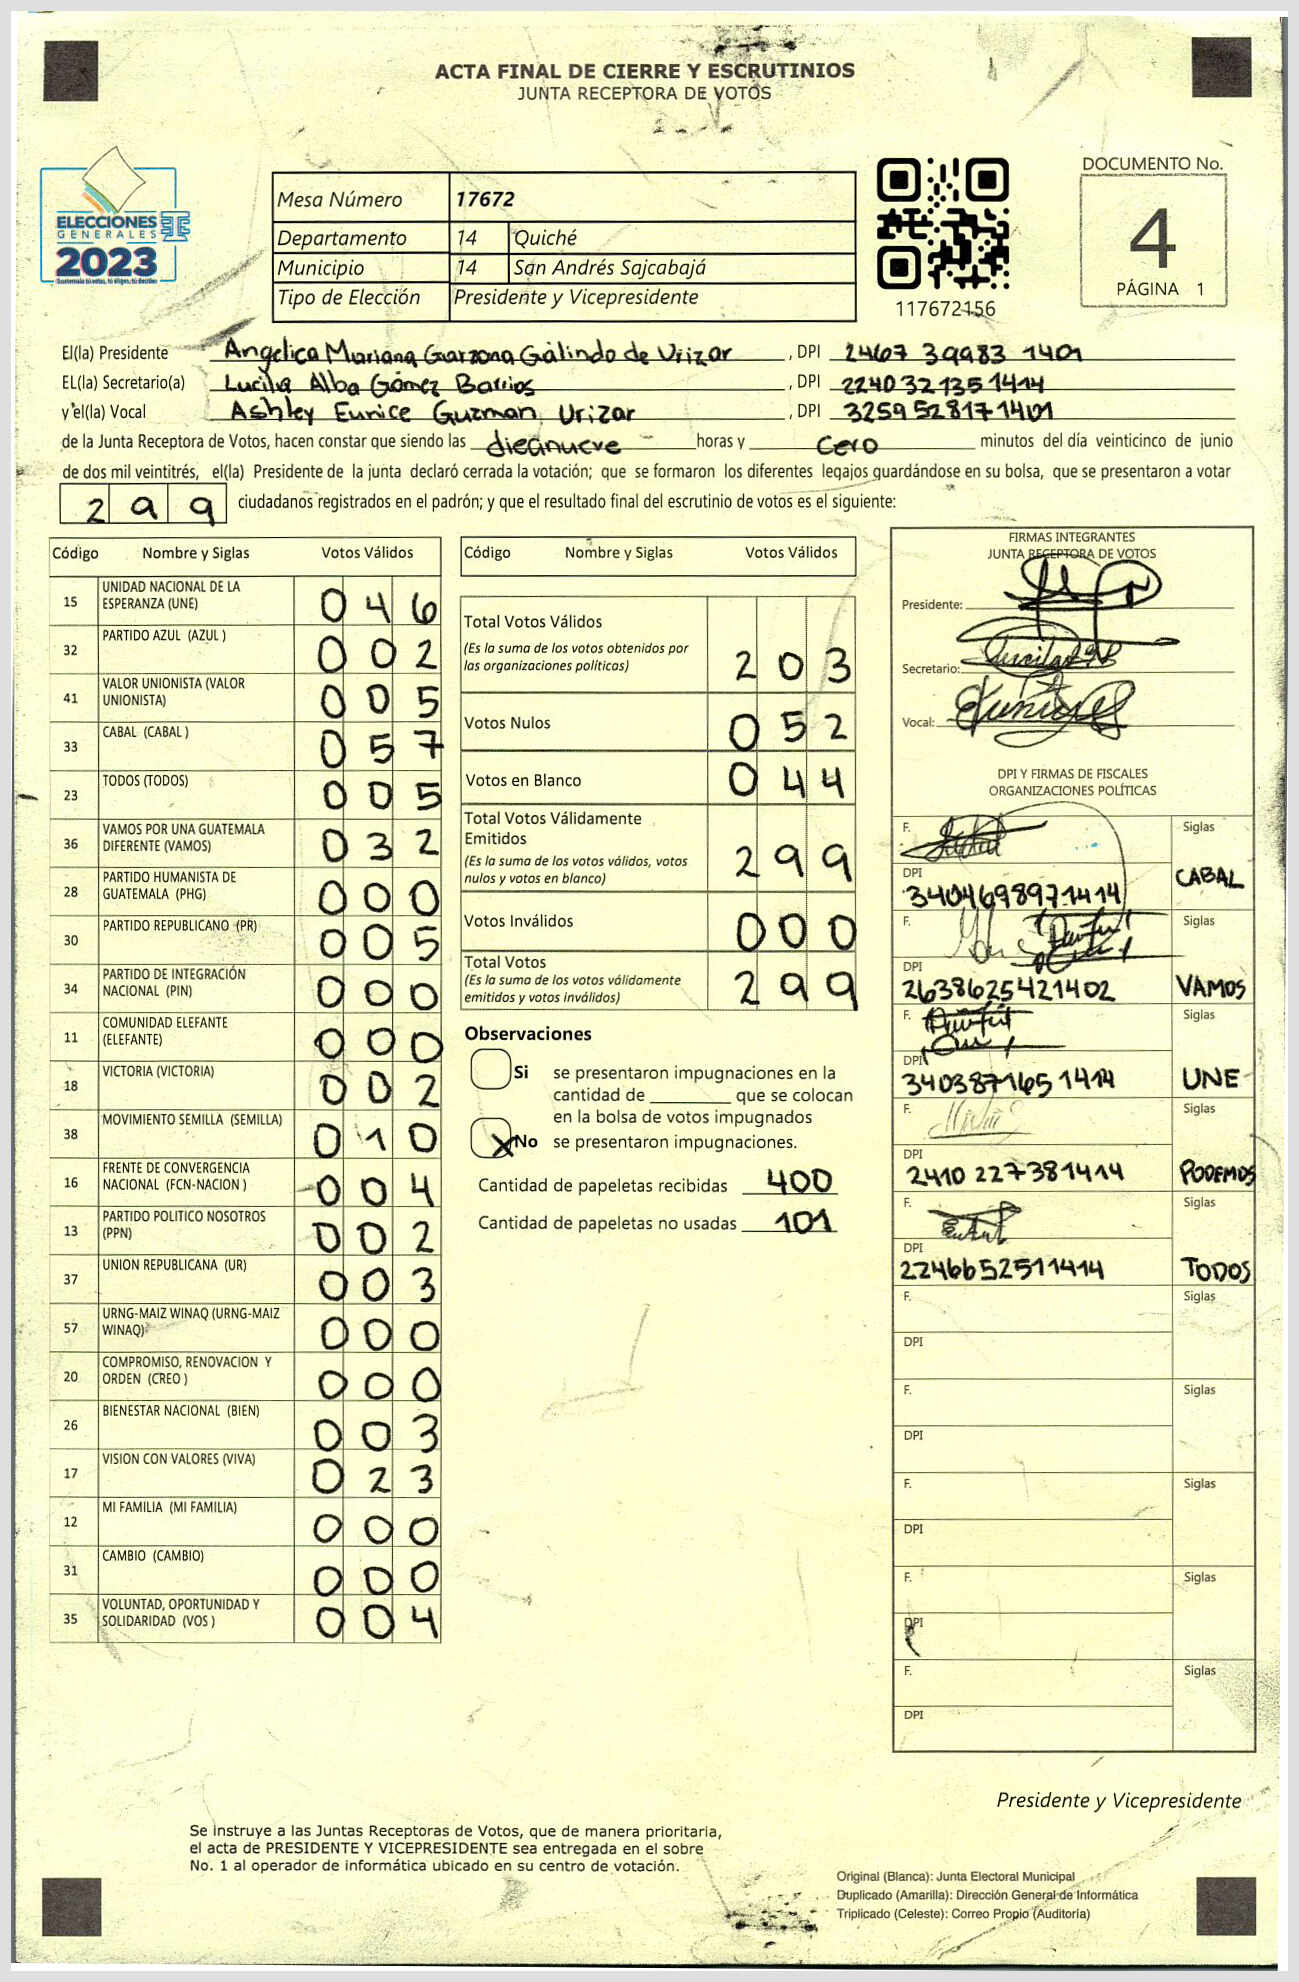 ACTA FINAL DE CIERRE Y ESCRUTINIOS
JUNTA RECEPTORA DE VOTOS
ELECCIONES
GENERALES
2023
Mesa Número 17672
Departamento 14 Quiché
Municipio 14 San Andrés Sajcabajá
Tipo de Elección Presidente y Vicepresidente
117672156
DOCUMENTO No.
4
PÁGINA 1
El(la) Presidente Angelica Mariana Garzona Galindo de Urizar, DPI 2467 39983 1401
EL(la) Secretario(a) Lucila Alba Gómez Barrios, DPI 2240321351414
y el(la) Vocal Ashley Eunice Guzman Urizar, DPI 3259528171401
de la Junta Receptora de Votos, hacen constar que siendo las diecinueve horas y cero minutos del día veinticinco de junio
de dos mil veintitrés, el(la) Presidente de la junta declaró cerrada la votación; que se formaron los diferentes legajos guardándose en su bolsa, que se presentaron a votar
299 ciudadanos registrados en el padrón; y que el resultado final del escrutinio de votos es el siguiente:
Código Nombre y Siglas Votos Válidos
15 UNIDAD NACIONAL DE LA ESPERANZA (UNE) 046
32 PARTIDO AZUL (AZUL ) 002
41 VALOR UNIONISTA (VALOR UNIONISTA) 005
33 CABAL (CABAL ) 057
23 TODOS (TODOS) 005
36 VAMOS POR UNA GUATEMALA DIFERENTE (VAMOS) 032
28 PARTIDO HUMANISTA DE GUATEMALA (PHG) 000
30 PARTIDO REPUBLICANO (PR) 005
34 PARTIDO DE INTEGRACIÓN NACIONAL (PIN) 000
11 COMUNIDAD ELEFANTE (ELEFANTE) 000
18 VICTORIA (VICTORIA) 002
38 MOVIMIENTO SEMILLA (SEMILLA) 010
16 FRENTE DE CONVERGENCIA NACIONAL (FCN-NACION ) 004
13 PARTIDO POLITICO NOSOTROS (PPN) 002
37 UNION REPUBLICANA (UR) 003
57 URNG-MAIZ WINAQ (URNG-MAIZ WINAQ) 000
20 COMPROMISO, RENOVACION Y ORDEN (CREO ) 000
26 BIENESTAR NACIONAL (BIEN) 003
17 VISION CON VALORES (VIVA) 023
12 MI FAMILIA (MI FAMILIA) 000
31 CAMBIO (CAMBIO) 000
35 VOLUNTAD, OPORTUNIDAD Y SOLIDARIDAD (VOS ) 004
Código Nombre y Siglas Votos Válidos
Total Votos Válidos 203
(Es la suma de los votos obtenidos por
las organizaciones políticas)
Votos Nulos 052
Votos en Blanco 044
Total Votos Válidamente
Emitidos 299
(Es la suma de los votos válidos, votos
nulos y votos en blanco)
Votos Inválidos 000
Total Votos 299
(Es la suma de los votos válidamente
emitidos y votos inválidos)
Observaciones
Si se presentaron impugnaciones en la
cantidad de ________ que se colocan
en la bolsa de votos impugnados
X No se presentaron impugnaciones.
Cantidad de papeletas recibidas 400
Cantidad de papeletas no usadas 101
FIRMAS INTEGRANTES
JUNTA RECEPTORA DE VOTOS
Presidente:
Secretario:
Vocal:
DPI Y FIRMAS DE FISCALES
ORGANIZACIONES POLÍTICAS
F. Siglas
DPI 3404698971414 CABAL
F. Siglas
DPI 2638625421402 VAMOS
F. Siglas
DPI 3403871651414 UNE
F. Siglas
DPI 2410 227381414 PODEMOS
F. Siglas
DPI 2246652511414 TODOS
F. Siglas
DPI
F. Siglas
DPI
F. Siglas
DPI
F. Siglas
DPI
F. Siglas
DPI
Presidente y Vicepresidente
Se instruye a las Juntas Receptoras de Votos, que de manera prioritaria,
el acta de PRESIDENTE Y VICEPRESIDENTE sea entregada en el sobre
No. 1 al operador de informática ubicado en su centro de votación.
Original (Blanca): Junta Electoral Municipal
Duplicado (Amarilla): Dirección General de Informática
Triplicado (Celeste): Correo Propio (Auditoría)